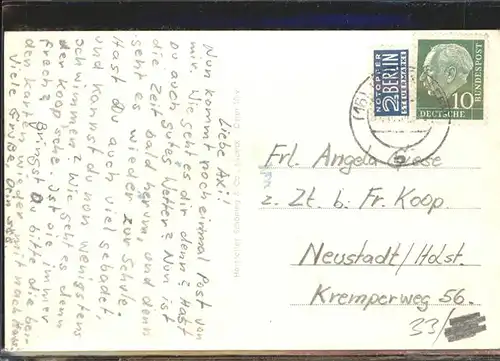 Liebe Axi!
Nun kommt noch einmal Post von
mir. Wie geht es dir denn? Hast
Du auch gutes Wetter? Nun ist
die Zeit bald herum, und dann
geht es wieder zur Schule.
Hast du auch viel gebadet
und kannst du nun wenigstens
schwimmen? Wie geht es denn
der Koop sche. Ist sie immer
frech? Bringst Du bitte die bei-
den Karten wieder mit nach Haus
Viele Grüße, Dein
NOTOPFER
2 BERLIN
STEUERMARKE
10
DEUTSCHE
BUNDESPOST
(16)
Frl. Angela Giese
z. Zt. b. Fr. Koop
Neustadt/Holst.
Kremperweg 56.
33/